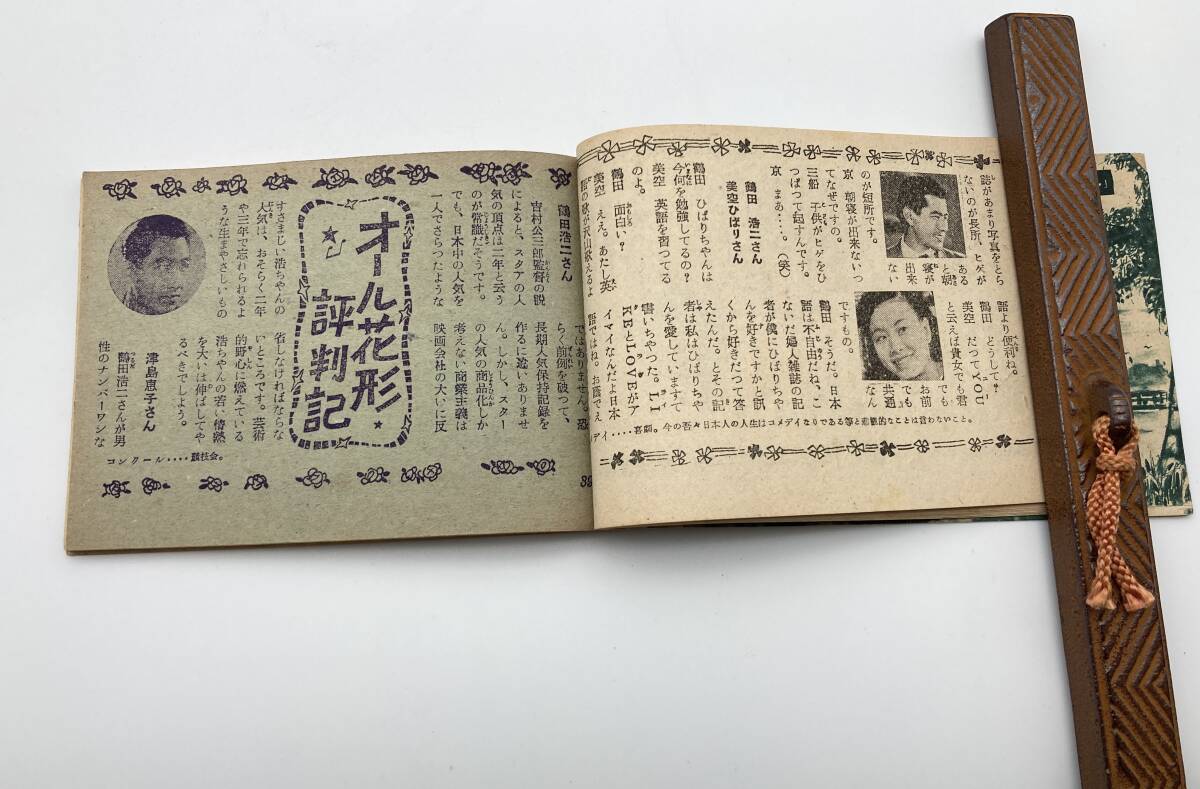 誌があまり写真をとら
ないのが長所、ヒゲが
ある
と朝
寝が
出来
ない
のが短所です。
京　朝寝が出来ないっ
てなぜですの。
三船　子供がヒゲをひ
つぱつて起すんです。
京　まあ‥‥。（笑）
鶴田　浩二さん
美空ひばりさん
鶴田　ひばりちやんは
今何を勉強してるの？
美空　英語を習つてる
のよ。
鶴田　面白い？
美空　え。あたし英
語の歌が沢山歌えるよ
語より便利ね。
美空　どうして？
鶴田　だつてYOU
と云えば貴女でも君
でも
お前
でも
共通
なん
ですもの。
鶴田　そうだね。日本
語は不自由だね、こ
ないだ婦人雑誌の記
者が僕にひばりちや
んを好きですかと訊
くから好きだつて答
えたんだ。とその記
者は私はひばりちや
んを愛していますて
書いちやつた。LI
KEとLOVEがア
イマイなんだよ日本
語ではね。お蔭でえ
ディ‥‥喜劇。今の吾々日本人の人生はコメデイなりである等と悲観的なことは言わないこと。
オール花形
評判記
鶴田浩二さん
吉村公三郎監督の説
によると、スタアの人
気の頂点は二年と云う
のが常識だそうです。
でも、日本中の人気を
一人でさらつたような
すさまじい浩ちやんの
人気は、おそらく二年
や三年で忘れられるよ
うな生まやさしいもの
ではありません。恐
らく前例を破つて、
長期人気保持記録を
作るに違いありませ
ん。しかし、スター
の人気の商品化しか
考えない商業主義は
映画会社の大いに反
省しなければならな
いところです。芸術
的野心に燃えている
浩ちやんの若い情熱
を大いは伸ばしてや
るべきでしよう。
津島恵子さん
鶴田浩二さんが男
性のナンバーワンな
コンクール‥‥競技会。